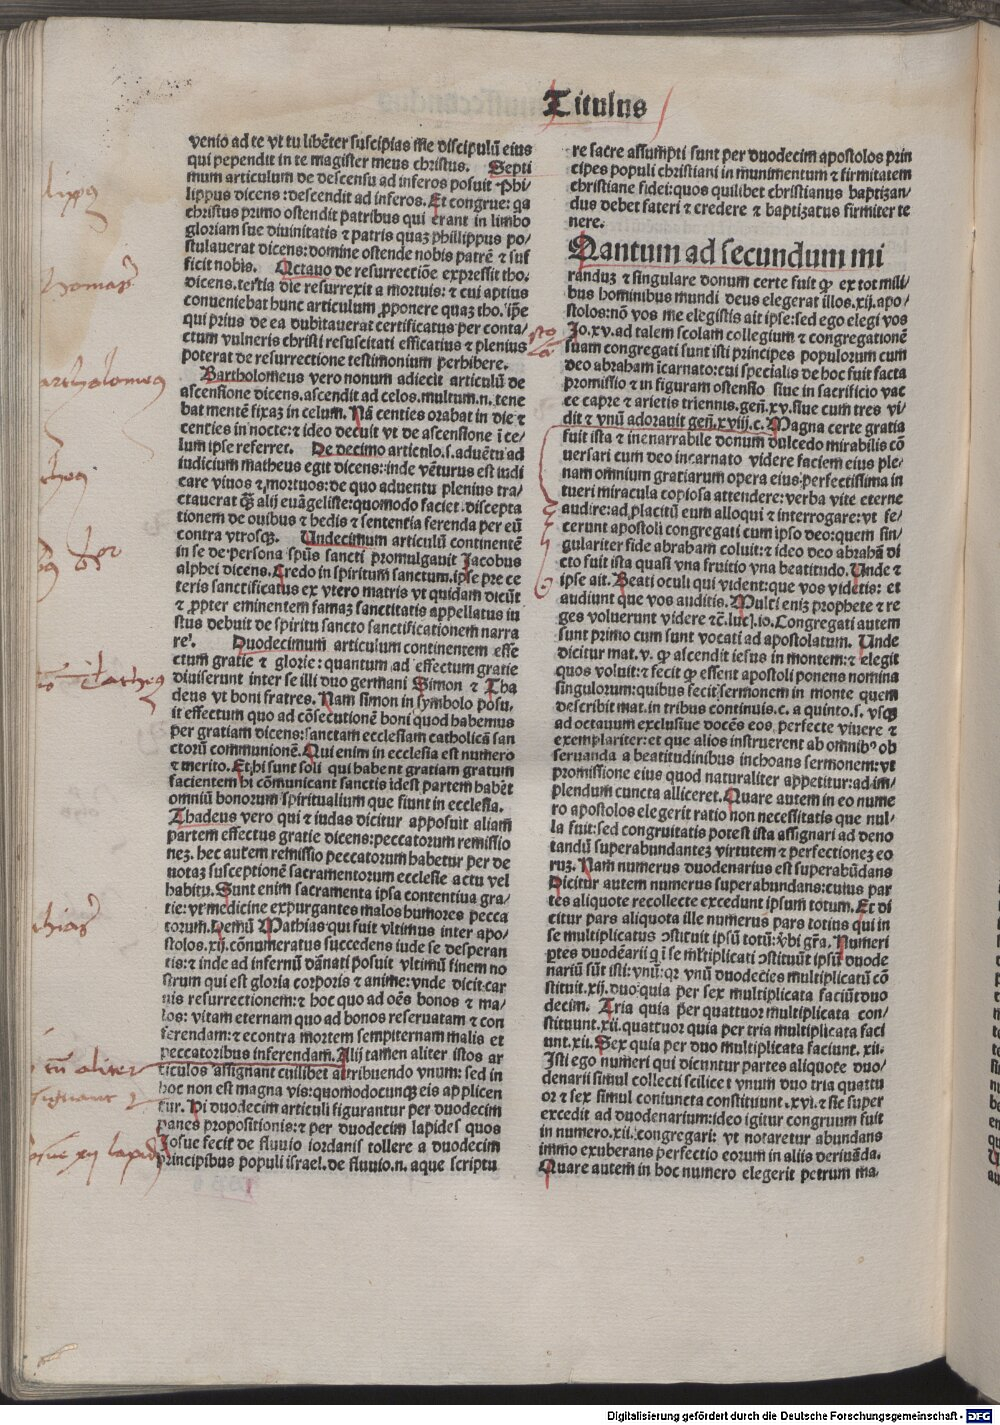 Titulus
venio ad te vt tu libēter suscipias me discipulū eius
qui pependit in te magister meus christus. Septi
mum articulum de descensu ad inferos posuit Phi/
lippus dicens: descendit ad inferos. Et congrue: qa
christus primo ostendit patribus qui erant in limbo
gloriam sue diuinitatis ⁊ patris quaꝫ philippus po/
stulauerat dicens: domine ostende nobis patrē ⁊ suf
ficit nobis. Octauo de resurrectiōe expressit tho.
dicens. tertia die resurrexit a mortuis: ⁊ cui aptius
conueniebat hunc articulum ꝓponere quaꝫ tho. ip̄e
qui prius de ea dubitauerat certificatus per conta/
ctum vulneris christi resuscitati efficatius ⁊ plenius
poterat de resurrectione testimonium perhibere.
Bartholomeus vero nonum adiecit articulū de
ascensione dicens. ascendit ad celos. multum. n. tene
bat mentē fixaꝫ in celum. Nā centies orabat in die ⁊
centies in nocte: ⁊ ideo decuit vt de ascensione ī ce/
lum ipse referret. De decimo articulo. s. aduētu ad
iudicium matheus egit dicens: inde vēturus est iudi
care viuos ⁊ mortuos: de quo aduentu plenius tra/
ctauerat q̄ꝫ alij euāgeliste: quomodo faciet discepta
tionem de ouibus ⁊ hedis ⁊ sententia ferenda per eū
contra vtrosqꝫ. Undecimum articulū continentē
in se de persona spūs sancti promulgauit Jacobus
alphei dicens. Credo in spiritum sanctum. ipse pre ce
teris sanctificatus ex vtero matris vt quidam dicūt
⁊ ꝓpter eminentem famaꝫ sanctitatis appellatus iu
stus debuit de spiritu sancto sanctificationem narra
re. Duodecimum articulum continentem effe
ctum gratie ⁊ glorie: quantum ad effectum gratie
diuiserunt inter se illi duo germani Simon ⁊ Tha
deus vt boni fratres. Nam simon in symbolo posu.
it effectum quo ad cōsecutionē boni quod habemus
per gratiam dicens: sanctam ecclesiam catholicā san
ctorū communionē. Qui enim in ecclesia est numero
⁊ merito. Et hi sunt soli qui habent gratiam gratum
facientem hi cōmunicant sanctis idest partem habēt
omniū bonorum spiritualium que fiunt in ecclesia.
Thadeus vero qui ⁊ iudas dicitur apposuit aliam
partem effectus gratie dicens: peccatorum remissio
neꝫ. hec autem remissio peccatorum habetur per de
notaꝫ susceptionē sacramentorum ecclesie actu vel
habitu. Sunt enim sacramenta ipsa contentiua gra/
tie: vt medicine expurgantes malos humores pecca
torum. Demū Mathias qui fuit vltimus inter apo/
stolos. xij. cōnumeratus succedens iude se desperan
tis: ⁊ inde ad infernū dānati posuit vltimū finem no
strum qui est gloria corporis ⁊ anime: vnde dicit car
nis resurrectionem: ⁊ hoc quo ad oēs bonos ⁊ ma/
los: vitam eternam quo ad bonos reseruatam ⁊ con
ferendam: ⁊ econtra mortem sempiternam malis et
peccatoribus inferendam. Alij tamen aliter istos ar
ticulos assignant cuilibet attribuendo vnum: sed in
hoc non est magna vis: quomodocunqꝫ eis applicen
tur. Hi duodecim articuli figurantur per duodecim
panes propositionis: ⁊ per duodecim lapides quos
Josue fecit de fluuio iordanis tollere a duodecim
principibus populi israel. de fluuio. n. aque scriptu
re sacre assumpti sunt per duodecim apostolos prin
cipes populi christiani in munimentum ⁊ firmitatem
christiane fidei: quos quilibet christianus baptizan/
dus debet fateri ⁊ credere ⁊ baptizatus firmiter te
nere.
Quantum ad secundum mi
randuꝫ ⁊ singulare donum certe fuit ꝙ ex tot mili/
bus hominibus mundi deus elegerat illos. xij. apo/
stolos: nō vos me elegistis ait ipse: sed ego elegi vos
Jo. xv. ad talem scolam collegium ⁊ congregationē
suam congregati sunt isti principes populorum cum
deo abraham īcarnato: cui specialis de hoc fuit facta
promissio ⁊ in figuram ostensio siue in sacrificio vac
ce capre ⁊ arietis triennis. gen̄. xv. siue cum tres vi/
dit ⁊ vnū adorauit gen̄. xviij. c. Magna certe gratia
fuit ista ⁊ inenarrabile donum dulcedo mirabilis cō
uersari cum deo incarnato videre faciem eius ple/
nam omnium gratiarum opera eius perfectissima in
tueri miracula copiosa attendere: verba vite eterne
audire: ad placitū eum alloqui ⁊ interrogare: vt fe/
cerunt apostoli congregati cum ipso deo: quem sin/
gulariter fide abraham coluit: ⁊ ideo deo abrahā di
cto fuit ista quasi vna fruitio vna beatitudo. Unde ⁊
ipse ait. Beati oculi qui vident: que vos videtis: et
audiunt que vos auditis. Multi eniꝫ prophete ⁊ re
ges voluerunt videre ⁊c̄. luc. io. Congregati autem
sunt primo cum sunt vocati ad apostolatum. Unde
dicitur mat. v. ꝙ ascendit iesus in montem: ⁊ elegit
quos voluit: ⁊ fecit ꝙ essent apostoli ponens nomina
singulorum: quibus fecit sermonem in monte quem
describit mat. in tribus continuis. c. a quinto. s. vsqꝫ
ad octauum exclusiue docēs eos perfecte viuere ⁊
exemplariter: et que alios instruerent ab omnibꝰ ob
seruanda a beatitudinibus inchoans sermonem: vt
promissione eius quod naturaliter appetitur: ad im/
plendum cuncta alliceret. Quare autem in eo nume
ro apostolos elegerit ratio non necessitatis que nul/
la fuit: sed congruitatis potest ista assignari ad deno
tandū superabundanteꝫ virtutem ⁊ perfectioneꝫ eo
ruꝫ. Nam numerus duodenarius est superabūdans
Dicitur autem numerus superabundans: cuius par
tes aliquote recollecte excedunt ipsum totum. Et di
citur pars aliquota ille numerus pars totius qui in
se multiplicatus ↄstituit ipsū totū: v̄bi gr̄a. Numeri
ptes duodēarij q̇ ī se mltiplicati ↄstituūt ipsū duode
nariū sūt isti: vnū: qꝛ vnū duodecies multiplicatū cō
stituit. xij. duo: quia per sex multiplicata faciūt duo
decim. Tria quia per quattuor multiplicata con/
stituunt. xii. quattuor quia per tria multiplicata faci
unt. xii. Sex quia per duo multiplicata faciunt. xii.
Isti ego numeri qui dicuntur partes aliquote duo/
denarii simul collecti scilicet vnum duo tria quattu
or ⁊ sex simul coniuncta constituunt. xvi. ⁊ sic super
excedit ad duodenarium: ideo igitur congruum fuit
in numero. xii. congregari: vt notaretur abundans
immo exuberans perfectio eorum in aliis deriuāda.
Quare autem in hoc numero elegerit petrum ma.
lippꝰ
homas
artholomeꝰ
Thadeꝰ
thias
tn̄ aliter
signant
osue xij lapid
Digitalisierung gefördert durch die Deutsche Forschungsgemeinschaft - DFG